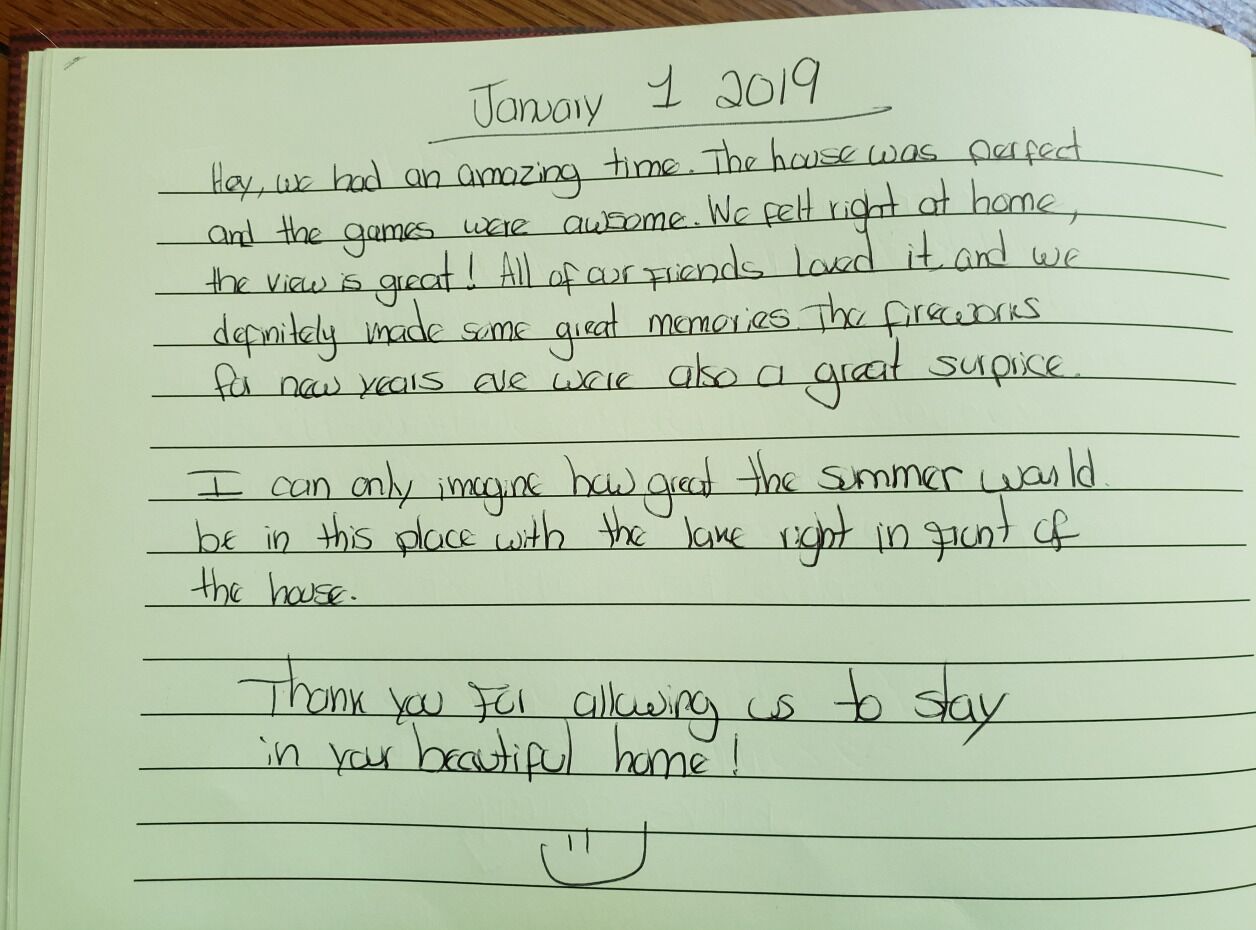 January 1 2019
Hey, we had an amazing time. The house was perfect
and the games were awsome. We felt right at home,
the view is great! All of our friends loved it and we
definitely made some great memories. The fireworks
for new years eve were also a great surprice.
I can only imagine how great the summer would
be in this place with the lake right in front of
the house.
Thank you for allowing us to stay
in your beautiful home!